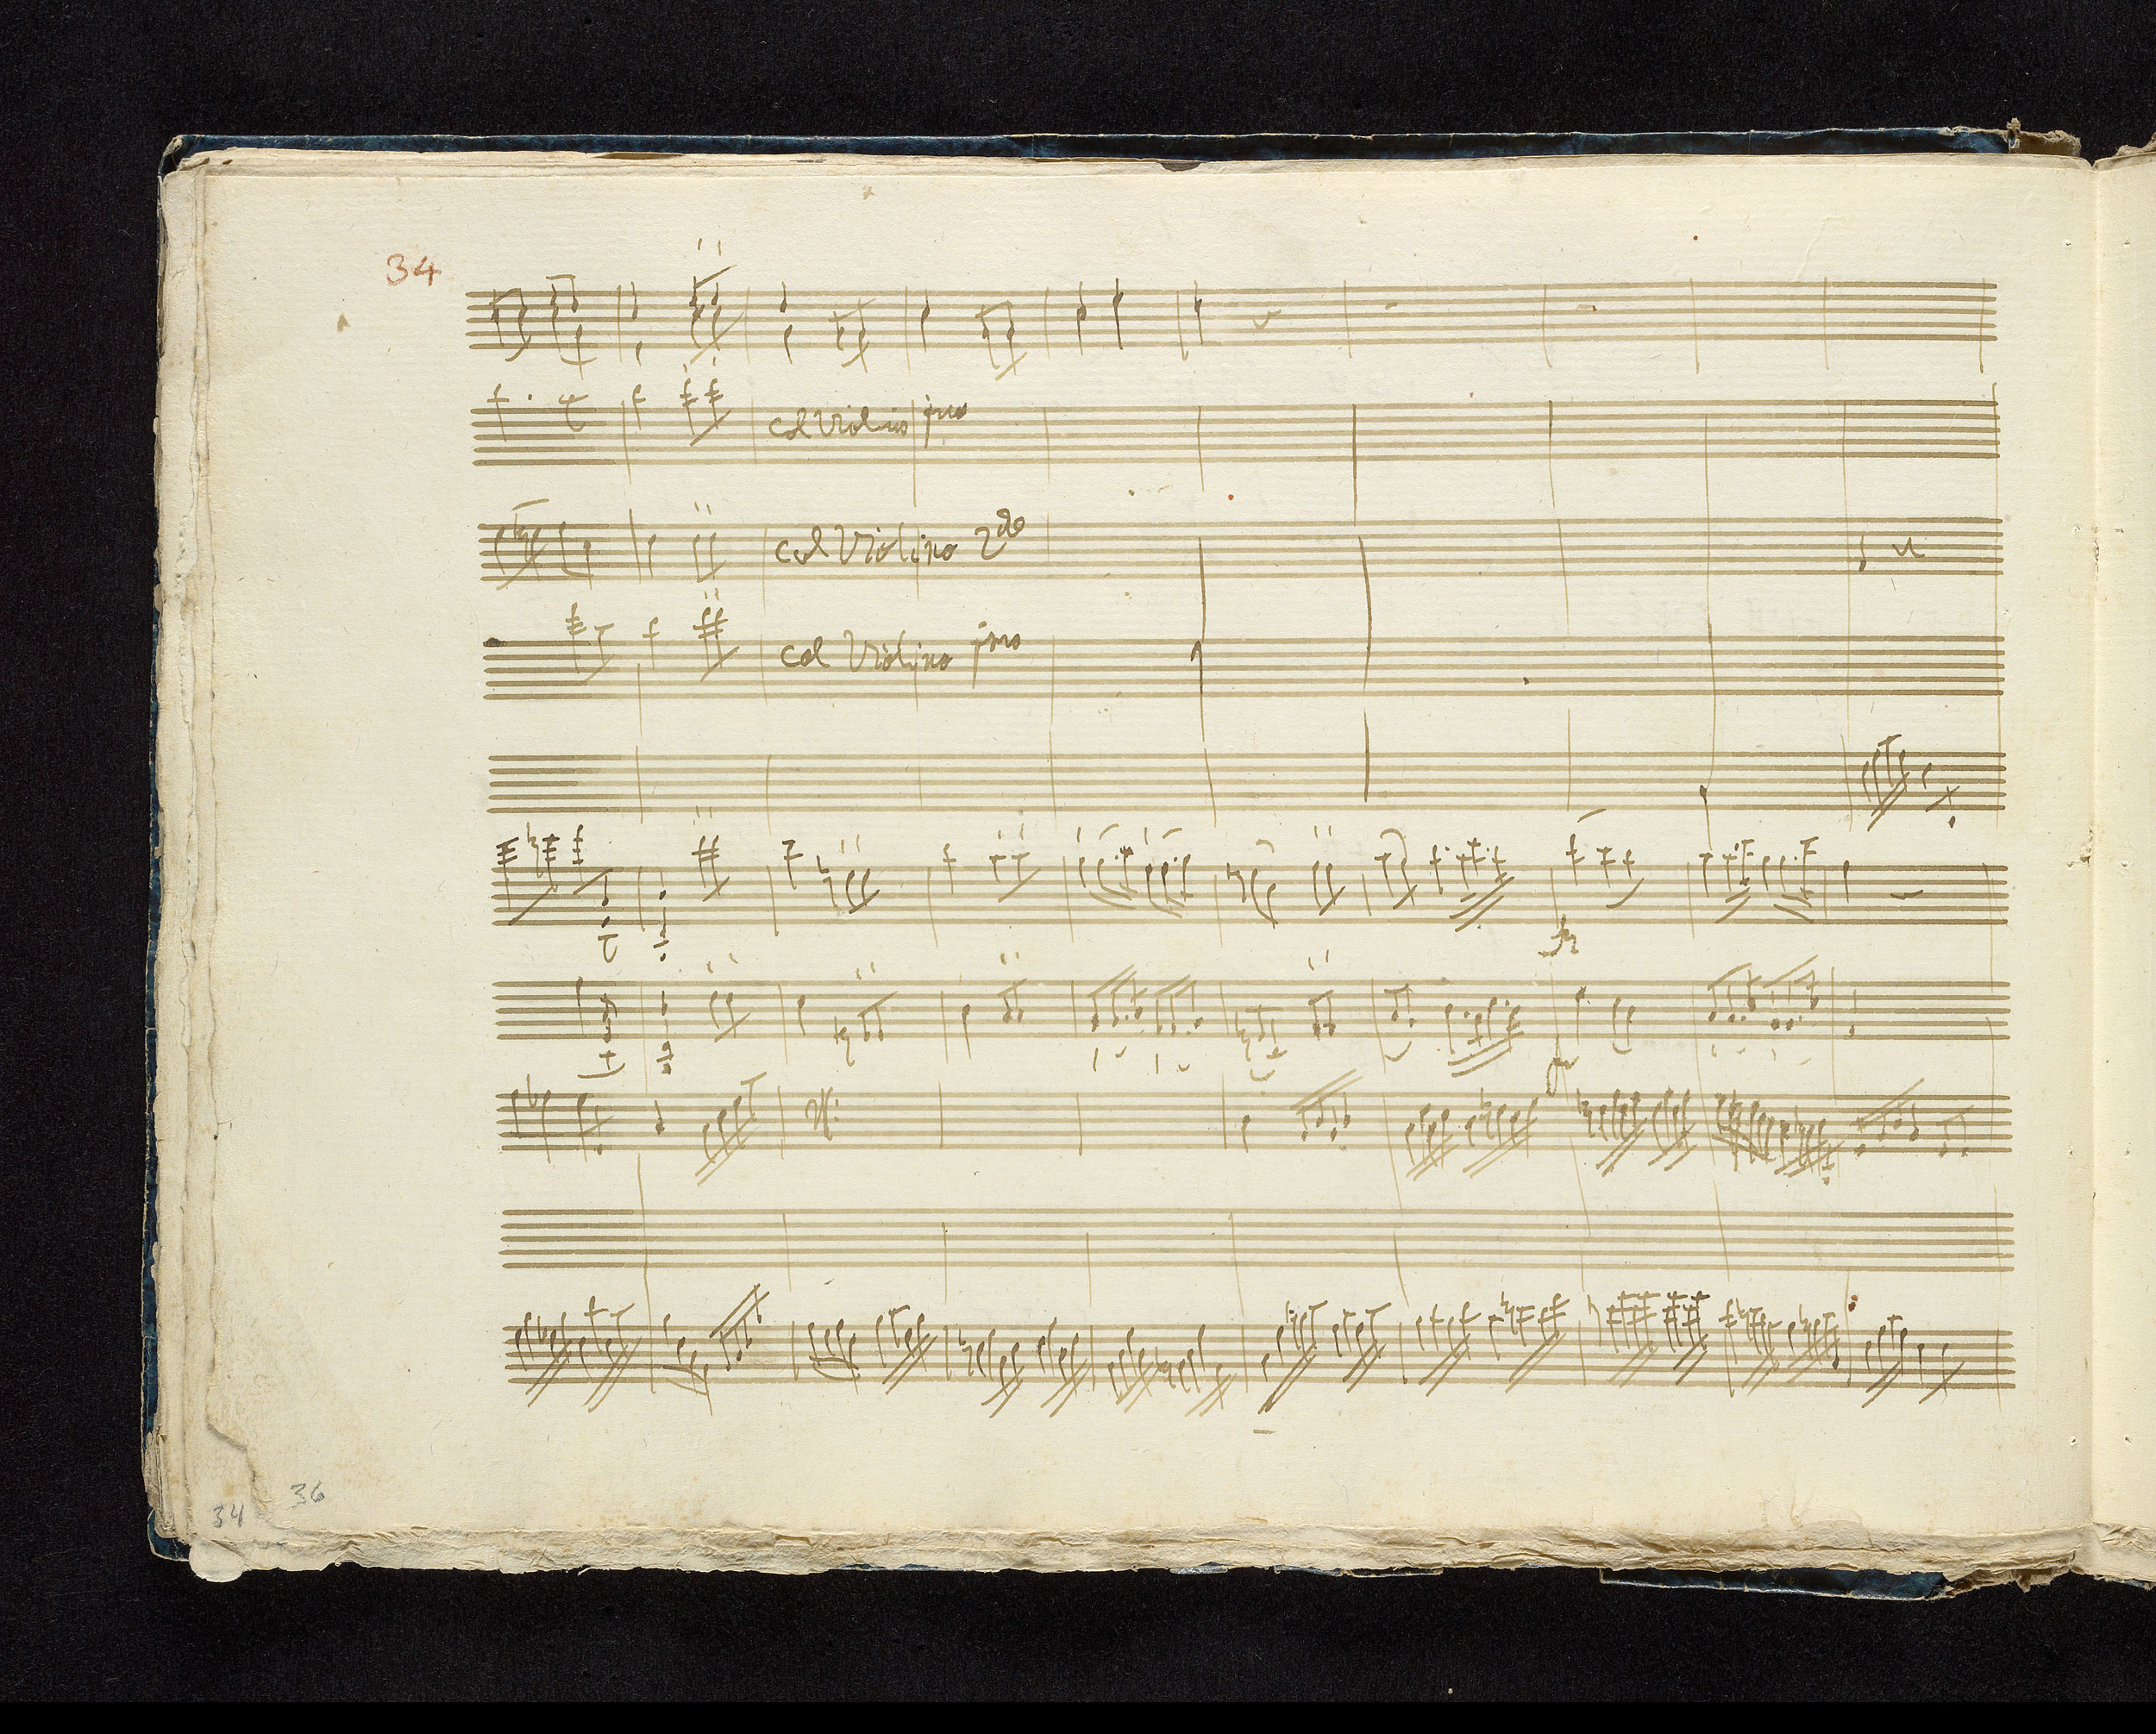 34
col Violino jmo
col Violino 2do
col Violino jmo
fz
36
34